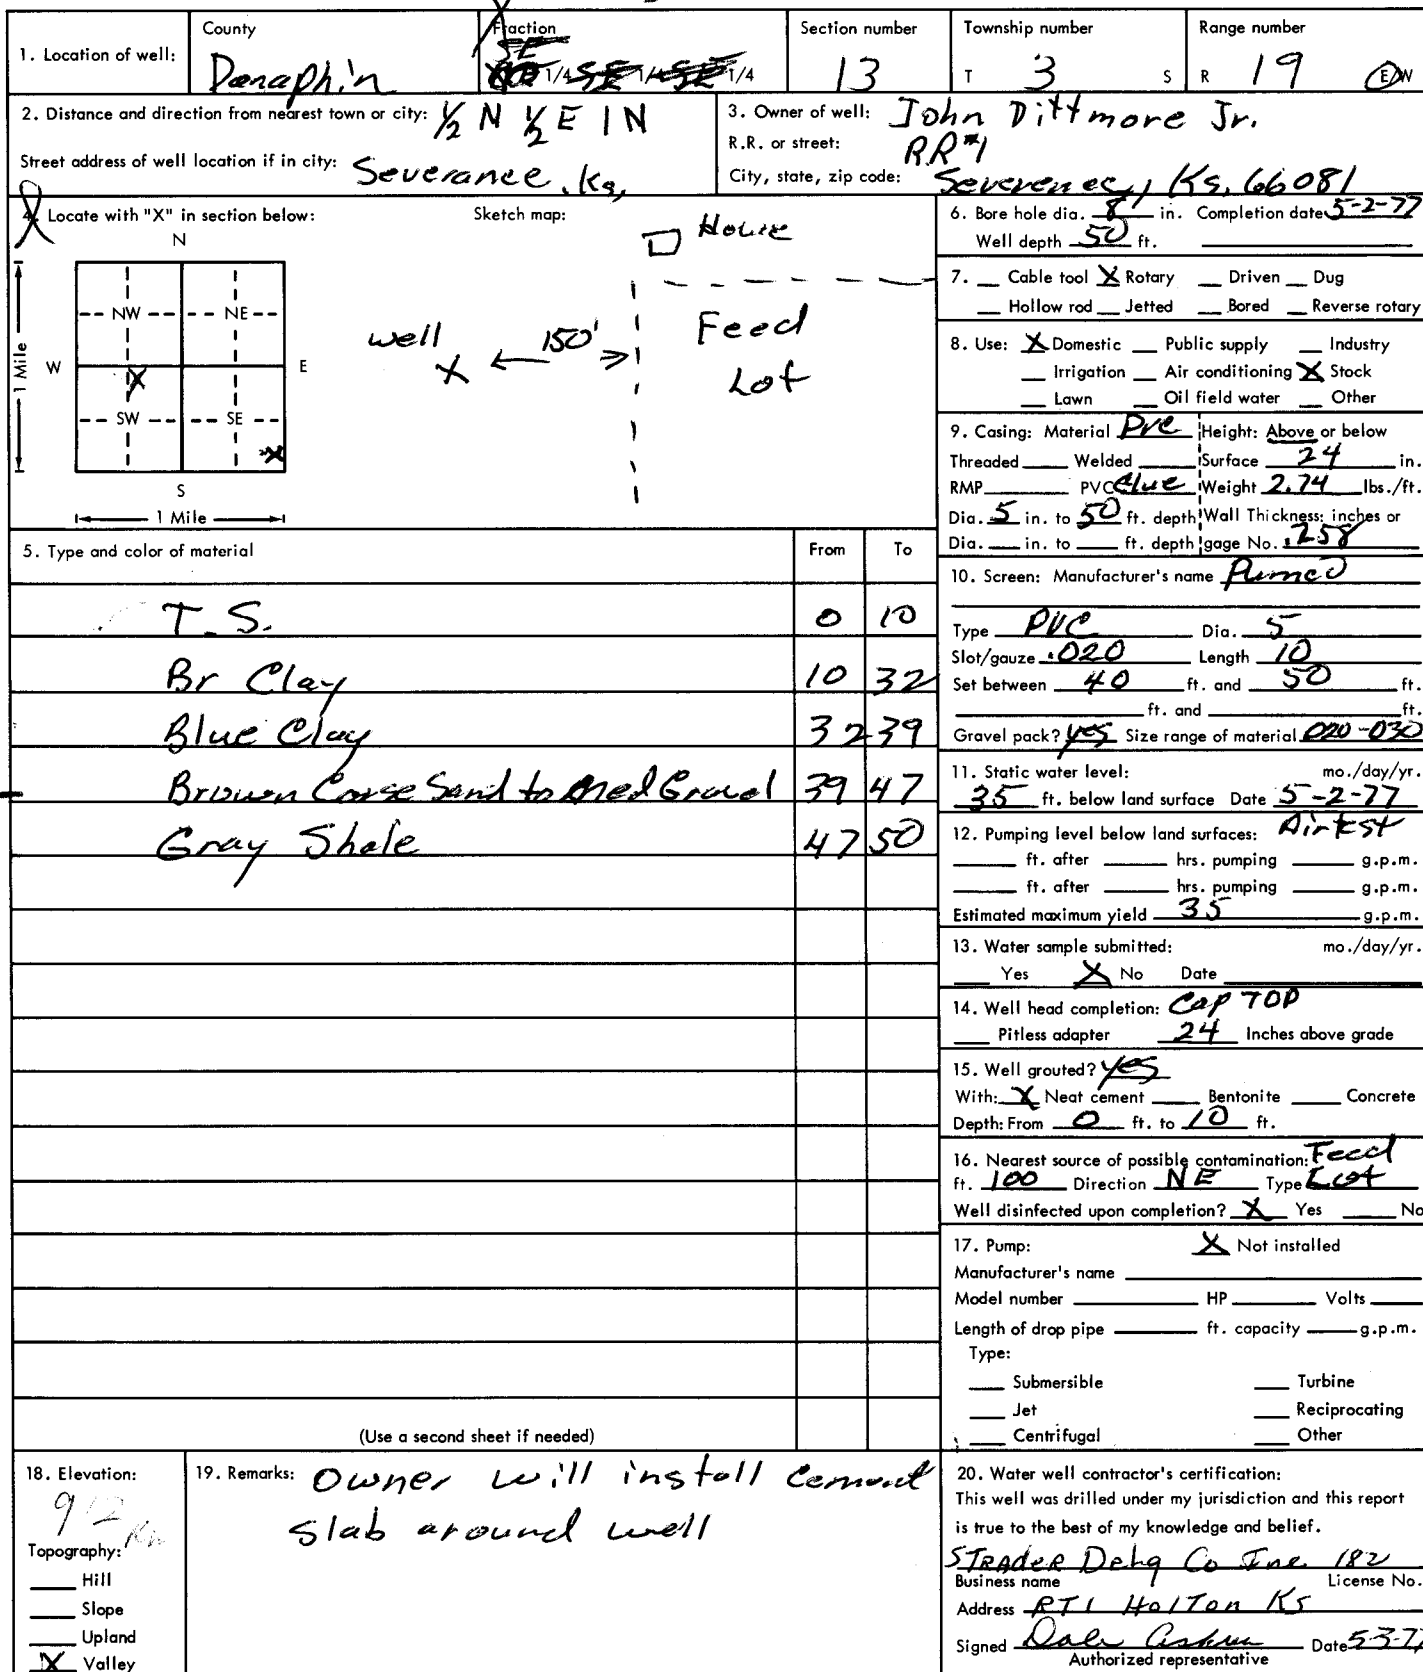 1. Location of well:
County
Donaphin
Fraction
SE
1/4 SE 1/4 SE 1/4
Section number
13
Township number
T 3 S
Range number
R 19 E/W
2. Distance and direction from nearest town or city: 1/2 N 1/2 E 1 N
Street address of well location if in city: Severance, Ks.
3. Owner of well: John Dittmore Jr.
R.R. or street: RR#1
City, state, zip code: Severence, Ks. 66081
4. Locate with "X" in section below:
Sketch map:
N
NW NE
W E
X
SW SE
X
S
1 Mile
1 Mile
House
well X 150'
Feed
Lot
5. Type and color of material From To
T.S. 0 10
Br Clay 10 32
Blue Clay 32 39
Brown Corse Sand to Med Gravel 39 47
Gray Shale 47 50
(Use a second sheet if needed)
6. Bore hole dia. 8 in. Completion date 5-2-77
Well depth 50 ft.
7. Cable tool X Rotary Driven Dug
Hollow rod Jetted Bored Reverse rotary
8. Use: X Domestic Public supply Industry
Irrigation Air conditioning X Stock
Lawn Oil field water Other
9. Casing: Material PVC Height: Above or below
Threaded Welded Surface 24 in.
RMP PVC Glue Weight 2.74 lbs./ft.
Dia. 5 in. to 50 ft. depth Wall Thickness: inches or
Dia. in. to ft. depth gage No. .258
10. Screen: Manufacturer's name
Type PVC Dia. 5
Slot/gauze .020 Length 10
Set between 40 ft. and 50 ft.
ft. and ft.
Gravel pack? yes Size range of material 020-030
11. Static water level: mo./day/yr.
35 ft. below land surface Date 5-2-77
12. Pumping level below land surfaces: Airtest
ft. after hrs. pumping g.p.m.
ft. after hrs. pumping g.p.m.
Estimated maximum yield 35 g.p.m.
13. Water sample submitted: mo./day/yr.
Yes X No Date
14. Well head completion: Cap TOP
Pitless adapter 24 Inches above grade
15. Well grouted? yes
With: X Neat cement Bentonite Concrete
Depth: From 0 ft. to 10 ft.
16. Nearest source of possible contamination: Feed
ft. 100 Direction NE Type Lot
Well disinfected upon completion? X Yes No
17. Pump: X Not installed
Manufacturer's name
Model number HP Volts
Length of drop pipe ft. capacity g.p.m.
Type:
Submersible Turbine
Jet Reciprocating
Centrifugal Other
18. Elevation:
912
Topography:
Hill
Slope
Upland
X Valley
19. Remarks: Owner will install Cement
slab around well
20. Water well contractor's certification:
This well was drilled under my jurisdiction and this report
is true to the best of my knowledge and belief.
STRADER Co Inc. 182
Business name License No.
Address RT1 HolTon Ks
Signed Dale Date 5-3-77
Authorized representative